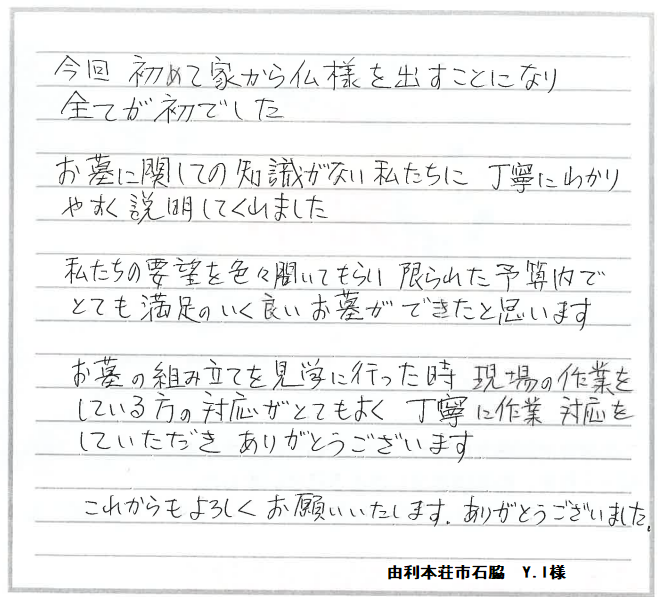 今回 初めて家から仏様を出すことになり
全てが初でした
お墓に関しての知識がない私たちに 丁寧にわかり
やすく説明してくれました
私たちの要望を色々聞いてもらい 限られた予算内で
とても満足のいく良いお墓ができたと思います
お墓の組み立てを見学に行った時 現場の作業を
している方の対応がとてもよく 丁寧に作業 対応を
していただき ありがとうございます
これからもよろしくお願いいたします。ありがとうございました。
由利本荘市石脇 Y.I様